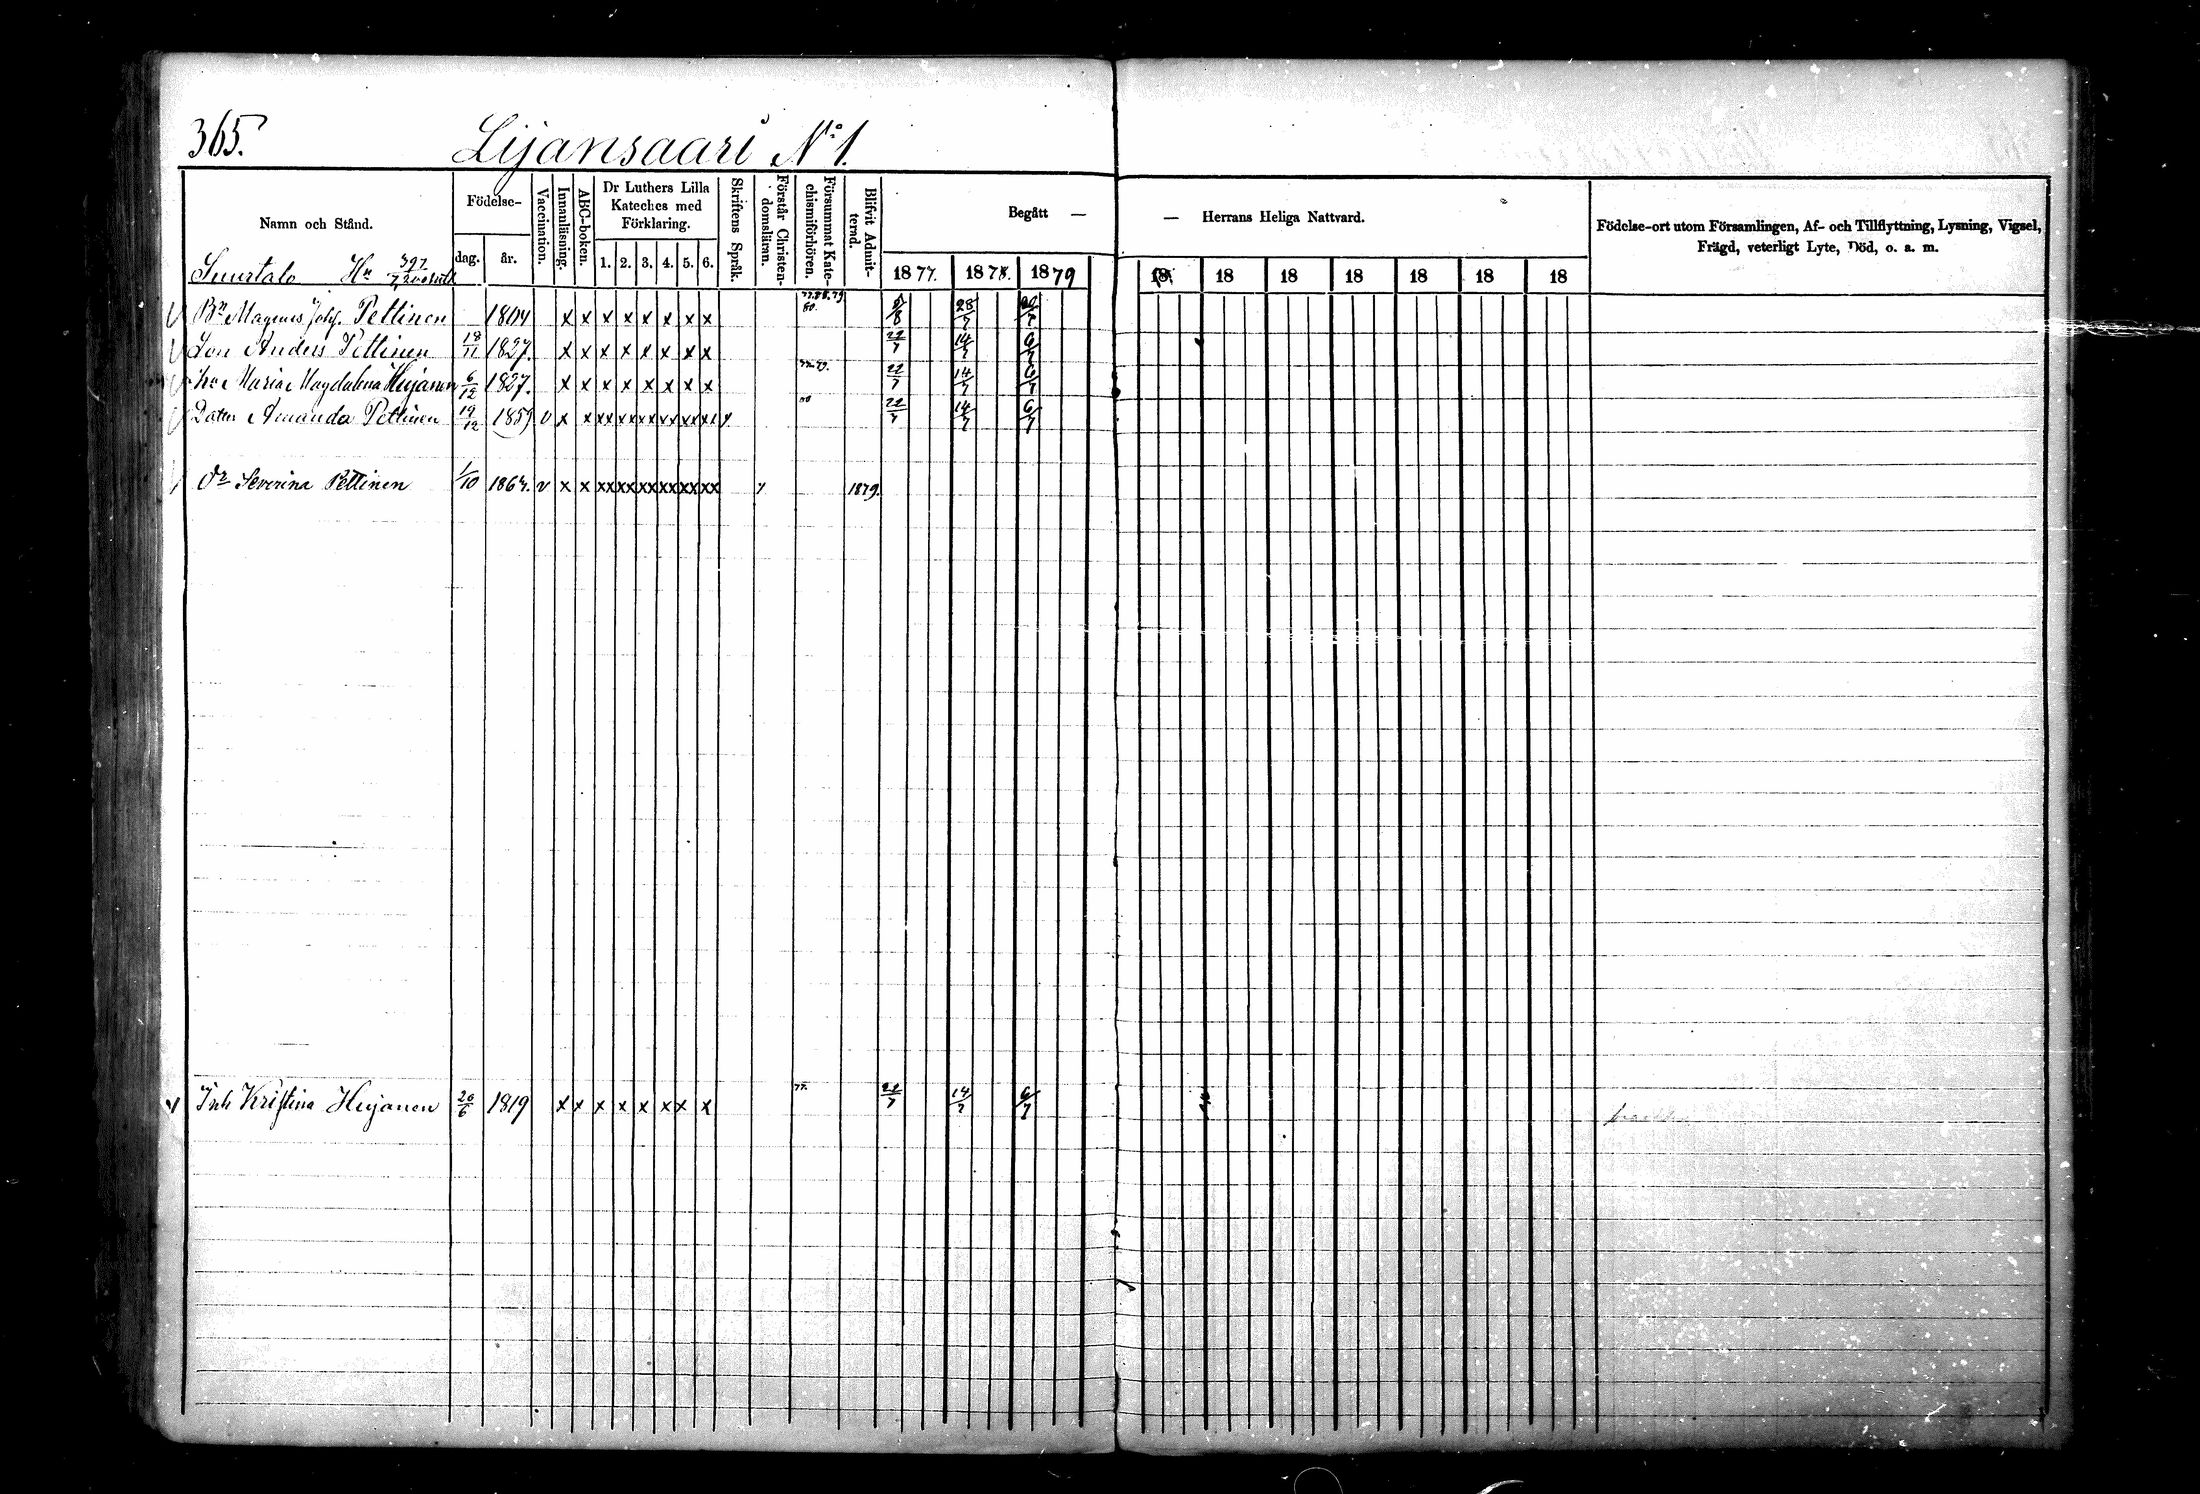 365.
Lijansaari No 1.
Namn och Stånd.
Födelse-
dag.
år.
Vaccination.
Innanläsning.
ABC-boken.
Dr Luthers Lilla
Kateches med
Förklaring.
1. 2. 3. 4. 5. 6.
Skriftens Språk.
Förstår Christen-
domsläran.
Försummat Kate-
chismiförhören.
Blifvit Admit-
terad.
Begått —
— Herrans Heliga Nattvard.
1877. 1878. 1879 18 18 18 18 18 18 18
Födelse-ort utom Församlingen, Af- och Tillflyttning, Lysning, Vigsel,
Frägd, veterligt Lyte, Död, o. a. m.
Suurtalo
Magnus Joh. Pettinen 1804 x x x x x x x x 80. 28/7
Son Anders Pettinen 18/11 1827. x x x x x x x x 22/7 14/7 6/7
Maria Magdalena Hujanen 6/12 1827. x x x x x x x x 22/7 14/7 6/7
Dottr Amanda Pettinen 19/12 1859 v x x xx xx xx xx xx xx 22/7 14/7 6/7
Dr Severina Pettinen 1/10 1864. v x x xx xx xx xx xx xx 1879.
Inh Kristina Hujanen 26/6 1819 x x x x x x x x 77. 22/7 14/7 6/7